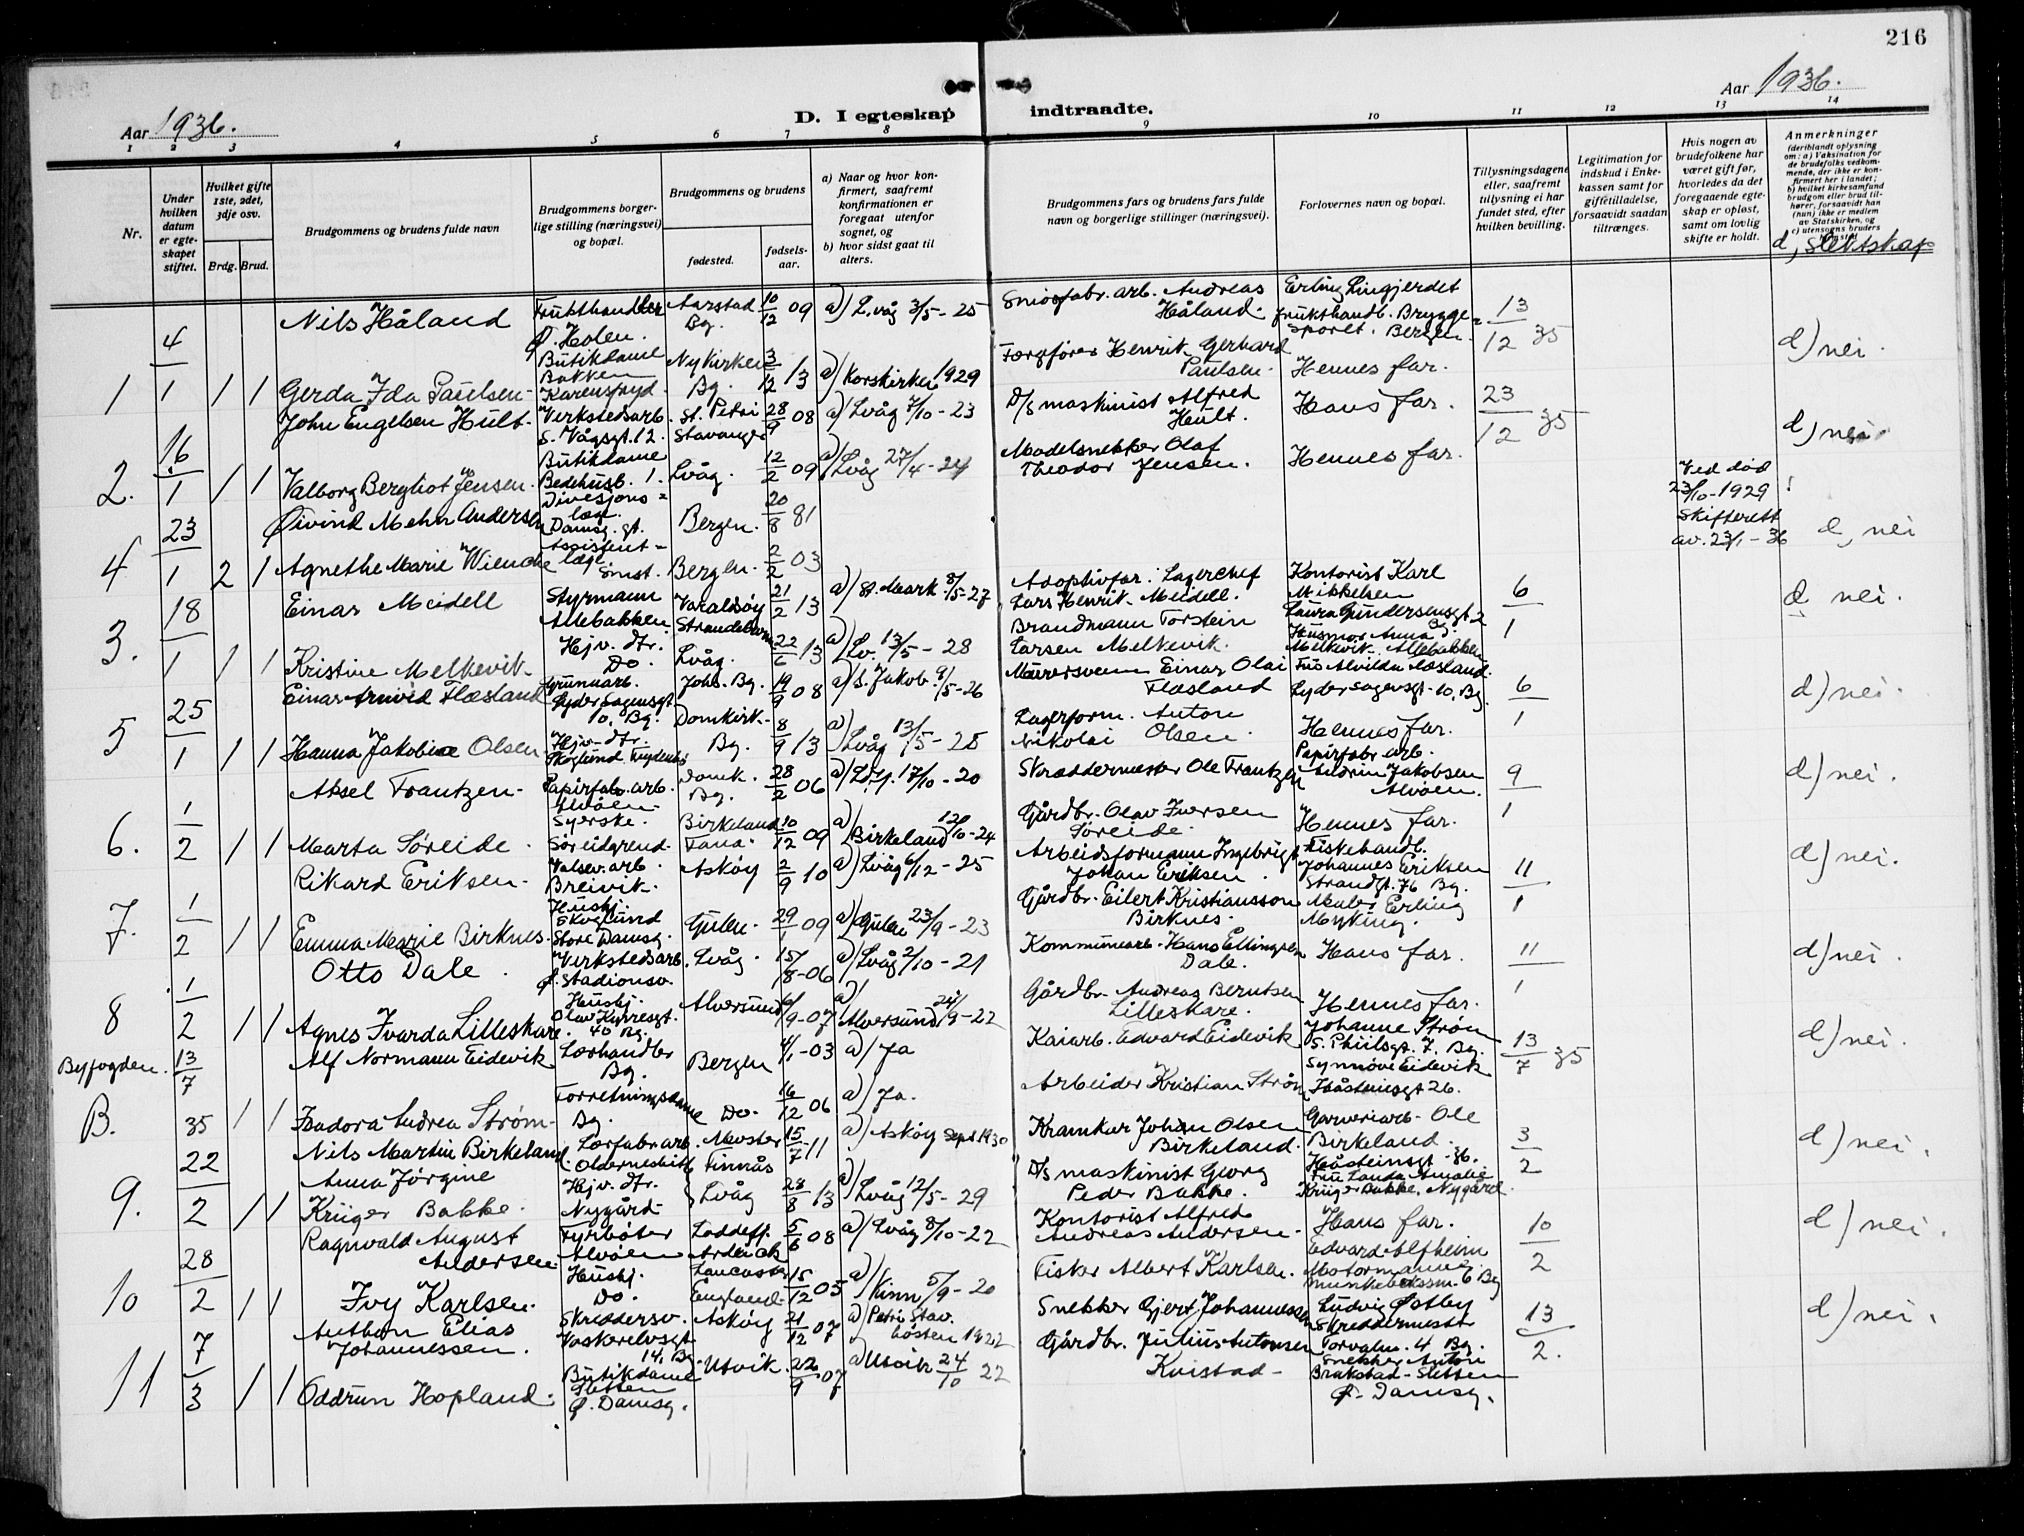 216
Aar 1936.
D. I egteskap indtraadte.
Aar 1936.
1 2 3 4 5 6 7 8 9 10 11 12 13 14
Nr.
Under hvilken datum er egteskapet stiftet.
Hvilket gifte 1ste, 2det, 3dje osv.
Brdg. Brud.
Brudgommens og brudens fulde navn
Brudgommens borgerlige stilling (næringsvei) og bopæl.
Brudgommens og brudens
fødested.
fødselsaar.
a) Naar og hvor konfirmert, saafremt konfirmationen er foregaat utenfor sognet, og
b) hvor sidst gaat til alters.
Brudgommens fars og brudens fars fulde navn og borgerlige stillinger (næringsvei).
Forlovernes navn og bopæl.
Tillysningsdagene eller, saafremt tillysning ei har fundet sted, efter hvilken bevilling.
Legitimation for indskud i Enkekassen samt for giftetilladelse, forsaavidt saadan tiltrænges.
Hvis nogen av brudefolkene har været gift før, hvorledes da det foregaaende egteskap er opløst, samt om lovlig skifte er holdt.
Anmerkninger
(deriblandt oplysning om: a) Vaksination for de brudefolks vedkommende, der ikke er konfirmert her i landet; b) hvilket kirkesamfund brudgom eller brud tilhører, forsaavidt han (hun) ikke er medlem av Statskirken, og
d, Slektskap
1 4/1 1 1
Nils Håland
Frukthandler
Ø. Holen.
Aarstad Bg. 10/12 09
a) L.våg 3/5-25
Smørfabr. arb. Andreas Håland.
Erling Lingjerdet
frukthandl. Bryggesporet. Bergen.
13/12 35
d) nei.
Gerda Ida Paulsen
Butikdame
Bakken
Karensfryd.
Nykirken Bg. 3/12 13
a) Korskirken 1929
Henrik Gerhard Paulsen.
Hennes far.
2. 16/1 1 1
John Engelsen Hult.
Verkstedsarb.
S. Vågsgt. 12.
St. Petri Stavanger 28/9 08
a) Lvåg 7/10-23
D/s maskinist Alfred Hult.
Hans far.
23/12 35
d) nei
Valborg Bergliot Jensen.
Butikdame
Bedehusb. 1.
Lvåg. 12/2 09
a) Lvåg 27/4-24
Modelsnekker Olaf Theodor Jensen.
Hennes far.
4 23/1 2 1
Øivind Mehn Andersen
Divisjonslæge
Damsg. gt.
Bergen. 20/8 81
Ved død 23/10-1929
Skifterett av. 23/1-36
d, nei
Agnethe Marie Wiencke
Assistentlæge
Bergen. 2/2 03
3. 18/1 1 1
Einar Meidell
Styrmann
Allebakken
Varaldsøy Strandebarm 21/2 13
a) St. Mark. 8/5-27
Adoptivfar: Lagerchef Lars Henrik Meidell.
Kontorist Karl Mikkelsen
Laura Gundersensgt 2
6/1
d nei.
Kristine Melkevik
Hjv. dtr.
Do.
Lvåg. 22/6 13
a) Lv. 13/5-28
Brandmann Torstein Larsen Melkevik.
Husmor Anna Melkevik. Allebakken
5 25/1 1 1
Einar Arnvid Flæsland
Grunnarb.
Lyder Sagensgt 10, Bg.
Joh. Bg. 19/9 08
a) S. Jakob. 9/5-26
Murersvenn Einar Olai Flæsland
Fru Alvilda Flæsland
Lyder Sagensgt. 10, Bg.
6/1
d) nei.
Hanna Jakobine Olsen
Hjv. dtr.
Domkirk. Bg. 8/9 13
a) Lvåg 13/5-28
Lagerform. Anton Nikolai Olsen.
Hennes far.
6. 1/2 1 1
Aksel Frantzen
Papirfabr. arb.
Alvøen
Domk. Bg. 28/2 06
a) 17/10-20
Skreddermester Ole Frantzen
Papirfabr. arb.
Jakobsen Alvøen.
9/1
d) nei.
Marta Søreide.
Syerske.
Søreidgrend.
Birkeland Fana. 10/12 09
a) Birkeland 12/10-24
Gårdbr. Olav Iversen Søreide.
Hennes far.
7. 1/2 1 1
Rikard Eriksen
Valsev. arb.
Breivik.
Askøy 2/9 10
a) Lvåg 6/12-25
Arbeidsformann Ingebrigt Johan Eriksen.
Fiskehandl. Johannes Eriksen
Strandgt. 76 Bg.
11/1
d) nei.
Emma Marie Birknes.
Hushj.
Skoglund
Store Damsg.
Gulen. 29/1 09
a) Gulen 23/9-23
Gårdbr. Eilert Kristiansson Birknes.
Maler Erling Myking.
8 1/2 1 1
Otto Dale.
Verkstedsarb.
Ø. Stadionsv.
Lvåg. 15/8-06
a) Lvåg 2/10-21
Kommunearb. Hans Ellingsen Dale.
Hans far.
11/1
d) nei.
Agnes Ivarda Lilleskare.
Hushj.
Olav Kyrresgt. 40 Bg.
Alversund 6/9-07
a) Alversund 24/9-22
Gårdbr. Andreas Berntsen Lilleskare.
Hennes far.
Byfogden. B. 13/7 35 1 1
Alf Normann Eidevik
Lærhandler
Bg.
Bergen 4/1-03
a) Ja
Kaiarb. Edvard Eidevik
Johanne Strøm
Bg.
Synnøve Eidevik
Håsteinsgt 26.
13/7 35
d) nei.
Isadora Andrea Strøm
Forretningsdame
Bg.
Do. 16/12 06
a) Ja.
Arbeider Kristian Strøm
9. 22/2 1 1
Nils Martin Birkeland
Lærfabr. arb.
Moster Finnås 15/7-11
a) Askøy Sept 1930
Kramkar Johan Olsen Birkeland.
Garveriarb. Ole Birkeland.
Håsteinsgt. 36.
3/2
d) nei.
Anna Jørgine Krüger Bakke.
Hjv. dtr.
Nygård
Lvåg 28/8 13
a) Lvåg 12/5-29
D/s maskinist Georg Peder Bakke.
Fru Amalie Krüger Bakke, Nygård.
10 28/2 1 1
Ragnvald August Andersen
Fyrbøter
Alvøen
Loddefj. 5/6 08
a) Lvåg 8/10-22
Kontorist Alfred Andreas Andersen
Hans far.
10/2
d) nei.
Ivy Karlsen.
Hushj.
Do.
Lancaster England 15/12 05
a) Kinn 5/9-20
Fisker Albert Karlsen.
Edvard Alfheim
Motormann
Bg
11 7/3 1 1
Anthon Elias Johannessen.
Skreddersv.
Vaskerelvsgt 14, Bg.
Askøy 21/12 07
a) Petri Stav. høsten 1922
Snekker Gjert Johannessen
Ludvig Østby
Skreddermester
Torvalm. 4 Bg.
13/2.
d) nei.
Oddrun Hopland.
Butikdame
Sletten
Ø. Damsg.
Utvik. 22/9 07
a) Utvik 24/10 22
Gårdbr. Julius Antonsen Kvistad
Snekker Anton Brakstad Sletten
Ø. Damsg.